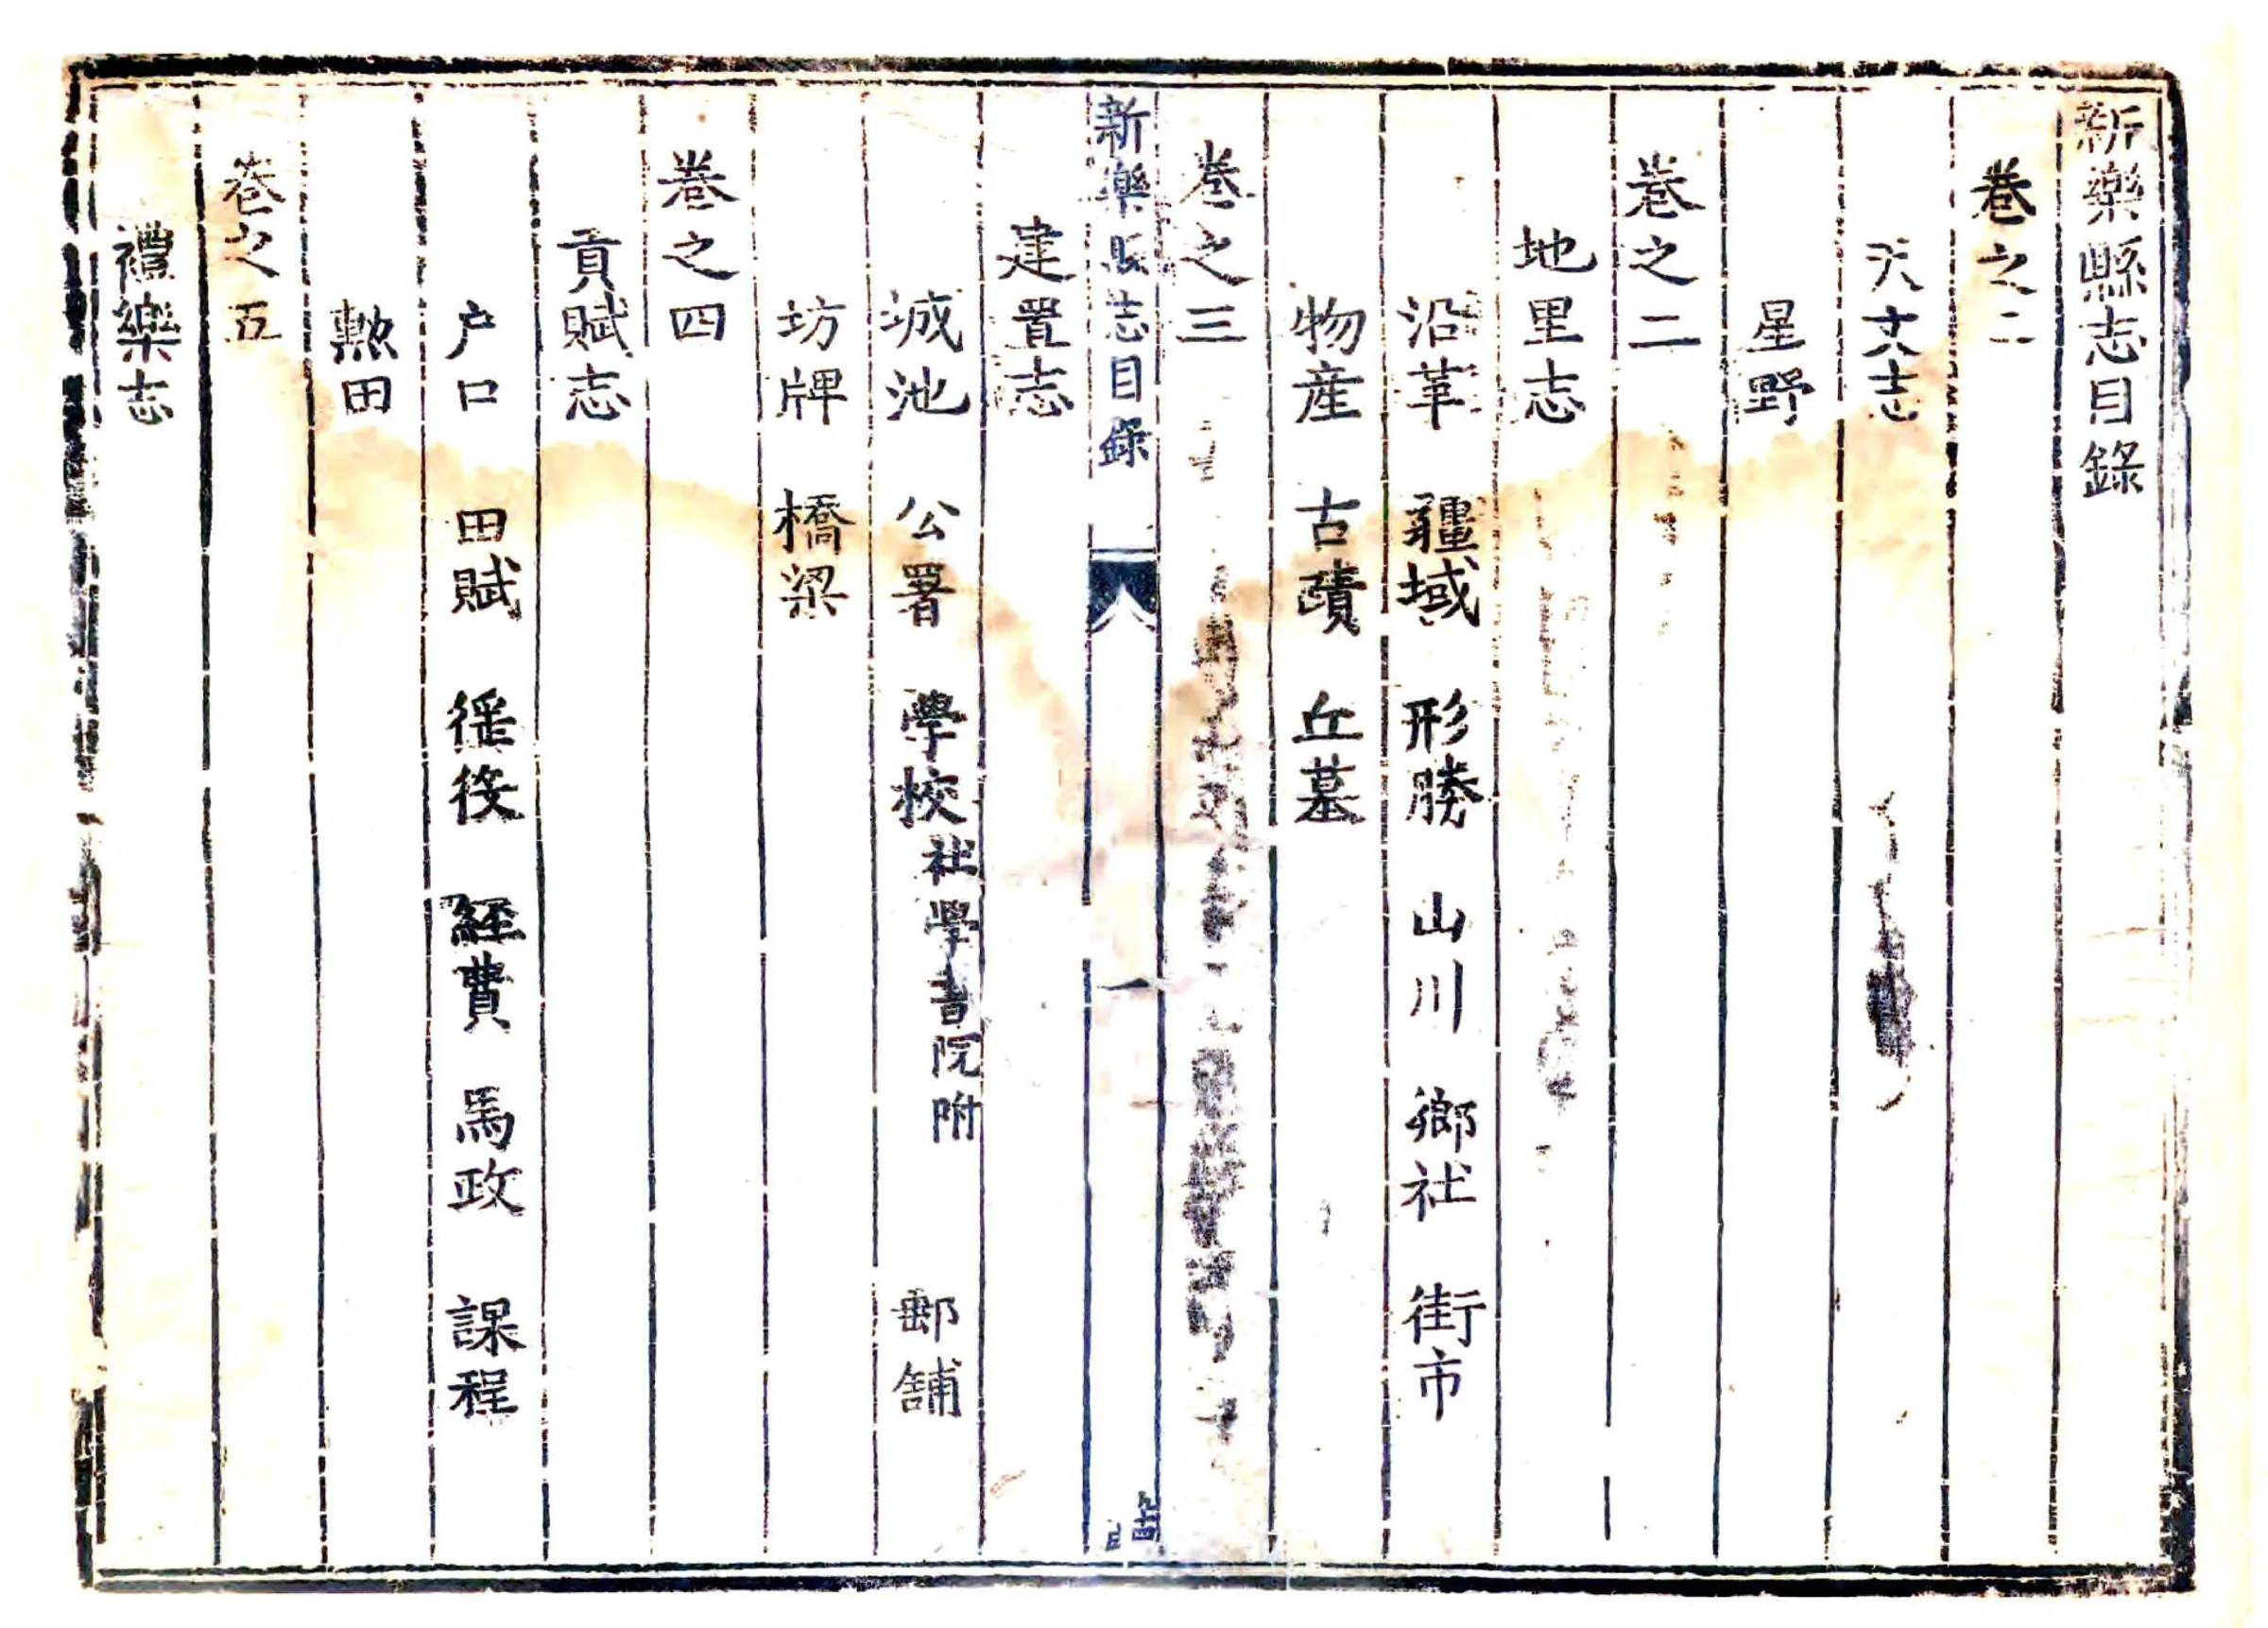 新樂縣志目錄
卷之二
天文志
星野
卷之二
地里志
沿革 疆域 形勝 山川 鄉社 街市
物産 古蹟 丘墓
卷之三
新樂縣志目錄 一
建置志
城池 公署 學校 社學書院附 郵舖
坊牌 橋梁
卷之四
貢賦志
户口 田賦 徭役 經費 馬政 課程
勲田
卷之五
禮樂志